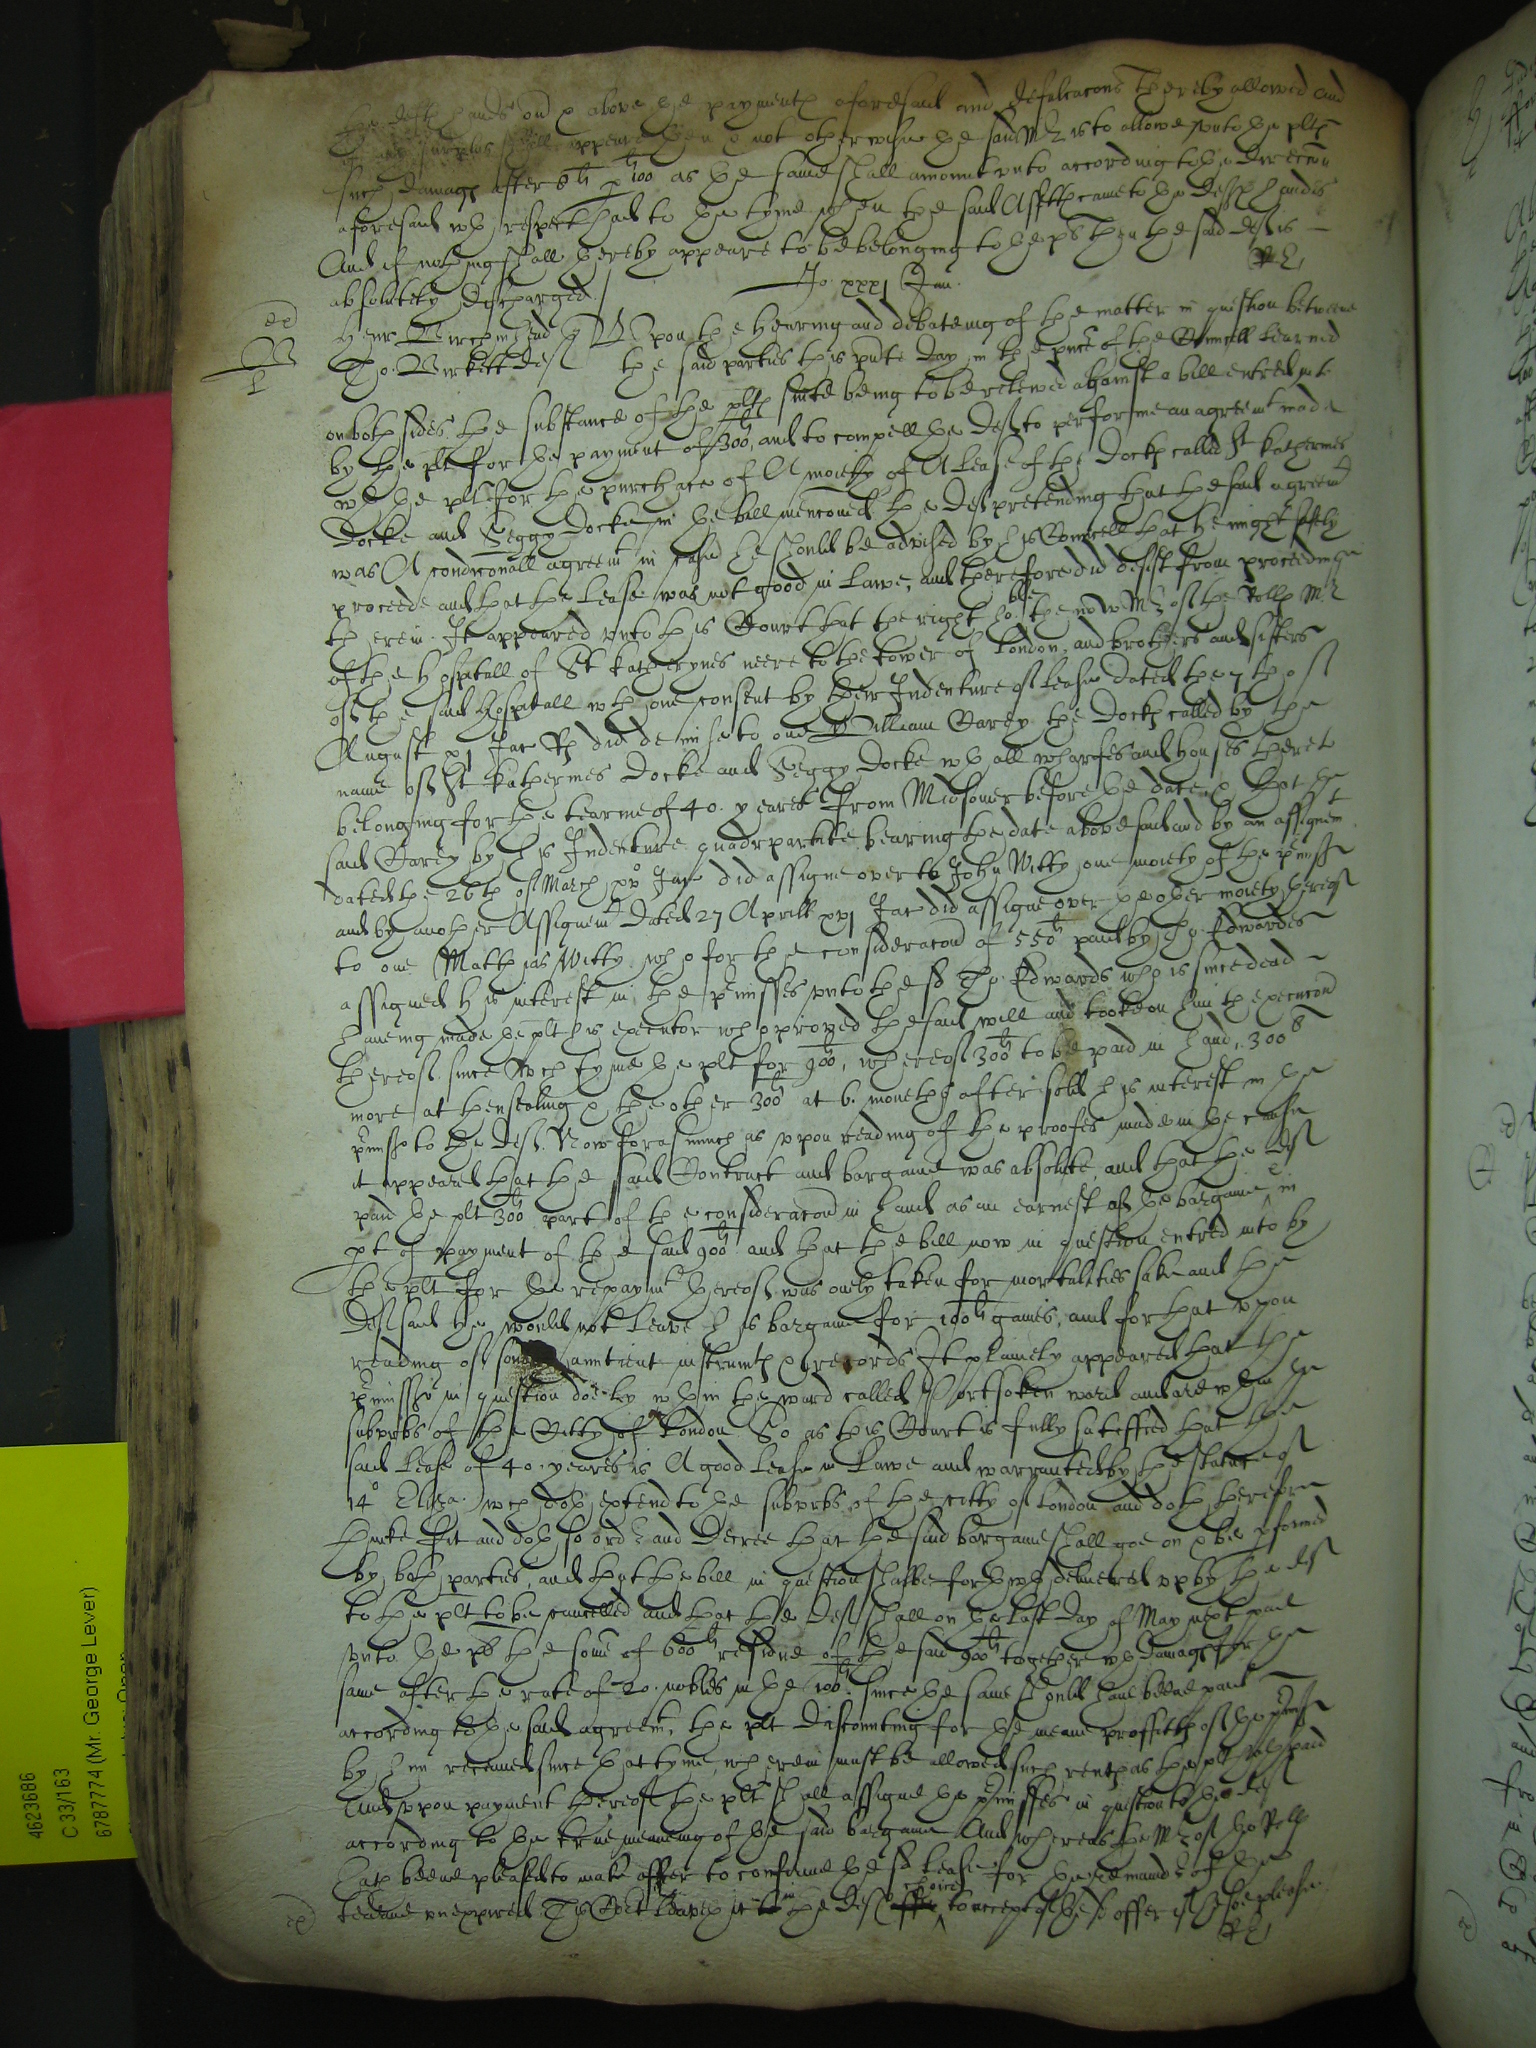 the deftes hands ov'r & above the payments aforesaid and defalcacons thereby allowed and
surplus shall appeare then & not otherwise the said Mr is to allowe vnto the pltes
such damages after 8li p 100li as the same shall amount vnto according to the direccon
aforesaid wth respect had to the tyme when the said Assetts came to the deftes handes
And if nothing shall hereby appeare to be belonging to the pts then the said deft is
absolutely discharged
Jo. xxxi Jan.
Henr. Birchin end q
Tho. Birkett deft
Vpon the Hearing and debateing of the matter in question betweene
the said parties this pnte day in the pnce of the Councell learned
on both sides, the substance of the pltes suite being to be releived against a bill entred into
by the plt for the payment of 300li, and to compell the deft to performe an agreemt made
wth the plt for the purchace of A moiety of A Lease of the Docks called St Katherines
Docke and Seggy Docke in the bill menconed the deft pretending that the said agreemt
was A condiconall agreemt in case he should be advised by his Councell that he might safely
proceede and that the Lease was not good in Lawe, and therefore did desist from proceeding
therein. It appeared vnto this Court that the right ho:ble the now Mr of the Rolls Mr
of the Hospitall of St Katherynes neere to the tower of London, and brothers and sisters
of the said Hospitall wth one consent by their Indenture of lease dated the 7th of
August xi Jac Rs did demise to one William Carey the Docks called by the
name of St Katherines Docke and Seggy Docke wth all wharfes and houses thereto
belonging for the tearme of 40. yeares from Midsomer before the date, & that the
said Carey by his Indenture quadrpartite bearing the date abovesaid and by an assignemt
dated the 26th of March xvo Jac did assigne over to John Witty one moiety of the pmisses
and by another Assignemt dated 27 Aprill xvi Jac did assigne over the other moiety thereof
to one Mathias Witty who for the consideracon of 550li paid by Tho. Edwardes
assigned his interest in the pmisses vnto the sd Tho. Edwards who is since dead
haueing made the plt his executor who proved the said will and tooke on him the execucon
thereof. since wch tyme the plt for 900li, whereof 300li to be paid in hand, 300li
more at thensealing & the other 300li at 6. moneths after sold his interest in the
pmisses to the deft. Now forasmuch as vpon reading of the proofes made in the cause
it appeared that the said Contract and bargaine was absolute, and that the deft
paid the plt 300li part of the consideracon in hand as an earnest of the bargaine & in
pt of payment of the said 900li and that the bill now in question entred into by
the plt for the repaymt thereof was onely taken for mortalities sake and the
deft said he would not leave his bargaine for 100li gaines, and for that vpon
reading of auntient instrumts & records It plainely appeared that the
pmisses in question doe ly wthin the ward called Portsoken ward and are wthin the
subvrbs of the Citty of London So as this Court is fully sateffied that the
said Lease of 40. yeares is A good lease in Lawe and warranted by the statute of
14o Eliza. wch doth extend to the subvrbs of the citty of London and doth therefore
thinke fit and doth so order and Decree that the said bargaine shall goe on & bee pformed
by both parties, and that the bill in question shalbe forthwth delivered vp by the deft
to the plt to be cancelled and that the deft shall on the last day of May next paie
vnto the plt the some of 600li residue of the said 900li together wth damages for the
same after the rate of 20. nobles in the 100li since the same should haue beene paid
according to the said agreemt, the plt discounting for the meane proffitts of the pmisses
by him receaued since that tyme, wherein must be allowed such rents as the plt hath paid
And vpon payment thereof the plt shall assigne the pmisses in question to the deft
according to the true meaneing of the said bargaine And whereas the Mr of the Rolls
hath beene pleased to make offer to confirme the sd Lease for the remainder of the
tearme vnexpired This Court leaveth it in the deft choice to accept of the sd offer if he soe please
4623686
C 33/163
67877774 (Mr. George Lever)